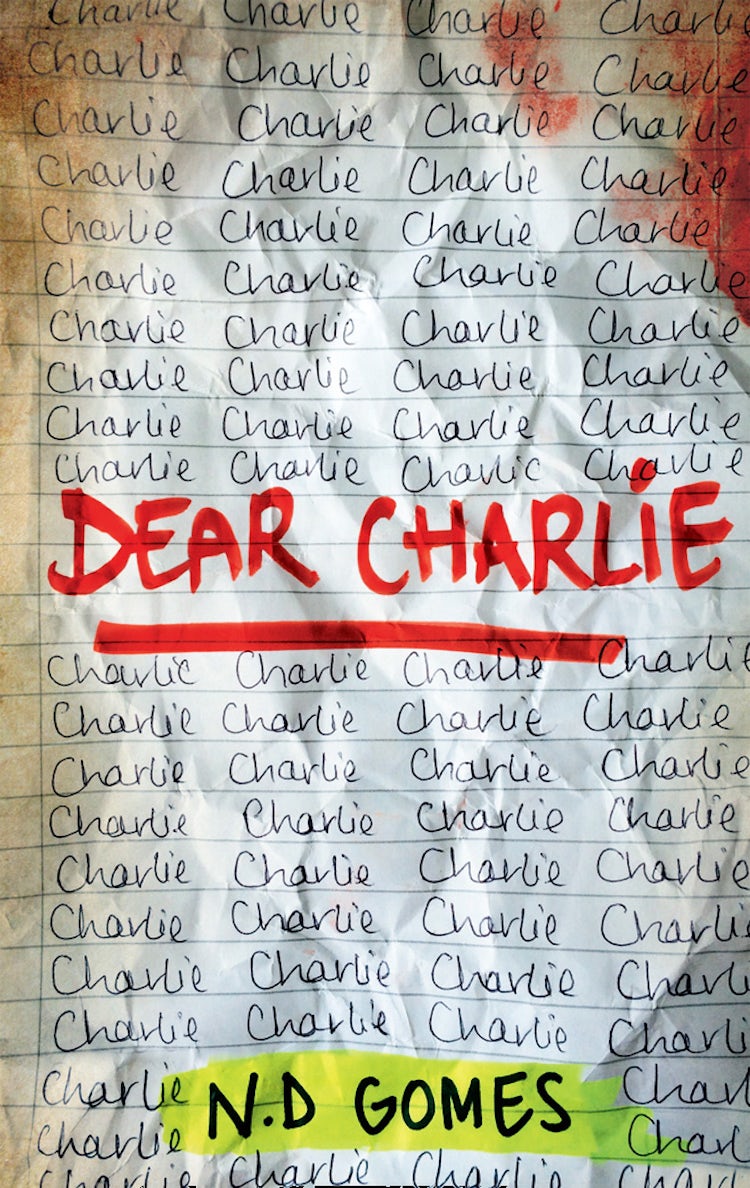 Charlie Charlie Charlie Charli
Charlie Charlie Charlie Charlie
Charlie Charlie Charlie Charlie
Charlie Charlie Charlie Charlie
Charlie Charlie Charlie Charlie
Charlie Charlie Charlie Charlie
Charlie Charlie Charlie Charlie
Charlie Charlie Charlie Charlie
Charlie Charlie Charlie Charlie
Charlie Charlie Charlie Charlie
DEAR CHARLIE
Charlie Charlie Charlie Charlie
Charlie Charlie Charlie Charlie
Charlie Charlie Charlie Charlie
Charlie Charlie Charlie Charlie
Charlie Charlie Charlie Charlie
Charlie Charlie Charlie Charli
Charlie Charlie Charlie Charli
Charlie Charlie Charlie Charli
Charlie Charl
N.D GOMES
Charlie Charl
Charlie Charlie Charlie Charli